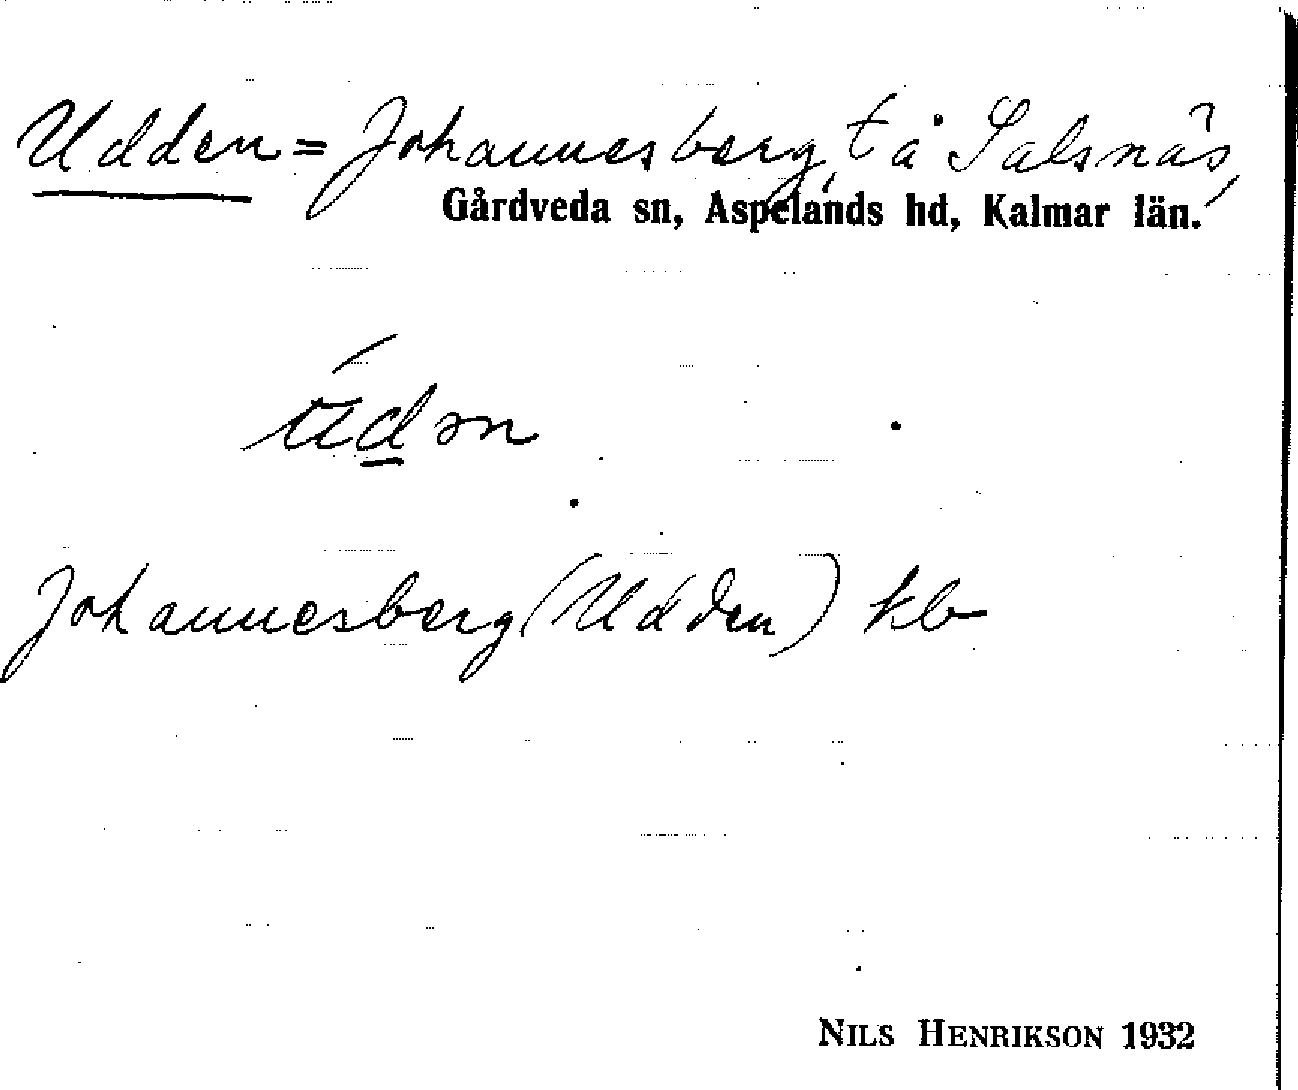 Udden = Johannesberg, t å Salsnäs,
Gårdveda sn, Aspelands hd, Kalmar län.
Johannesberg (Udden) kb
NILS HENRIKSON 1932